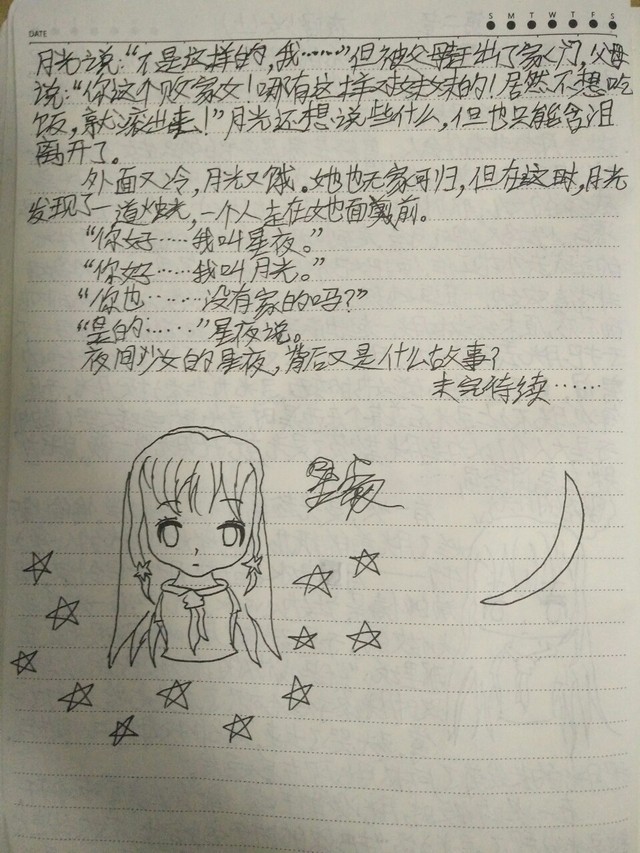 DATE
S M T W T F S
月光说:“不是这样的,我……”但被父母赶出了家门,父母
说:“你这个败家女!哪有这样对妹妹的!居然不想吃
饭,就滚出去!”月光还想说些什么,但也只能含泪
离开了。
外面又冷,月光又饿。她也无家可归,但在这时,月光
发现了一道烛光,一个人走在她面前。
“你好……我叫星夜。”
“你好……我叫月光。”
“你也……没有家的吗?”
“是的……”星夜说。
夜间少女的星夜,背后又是什么故事?
未完待续……
星夜